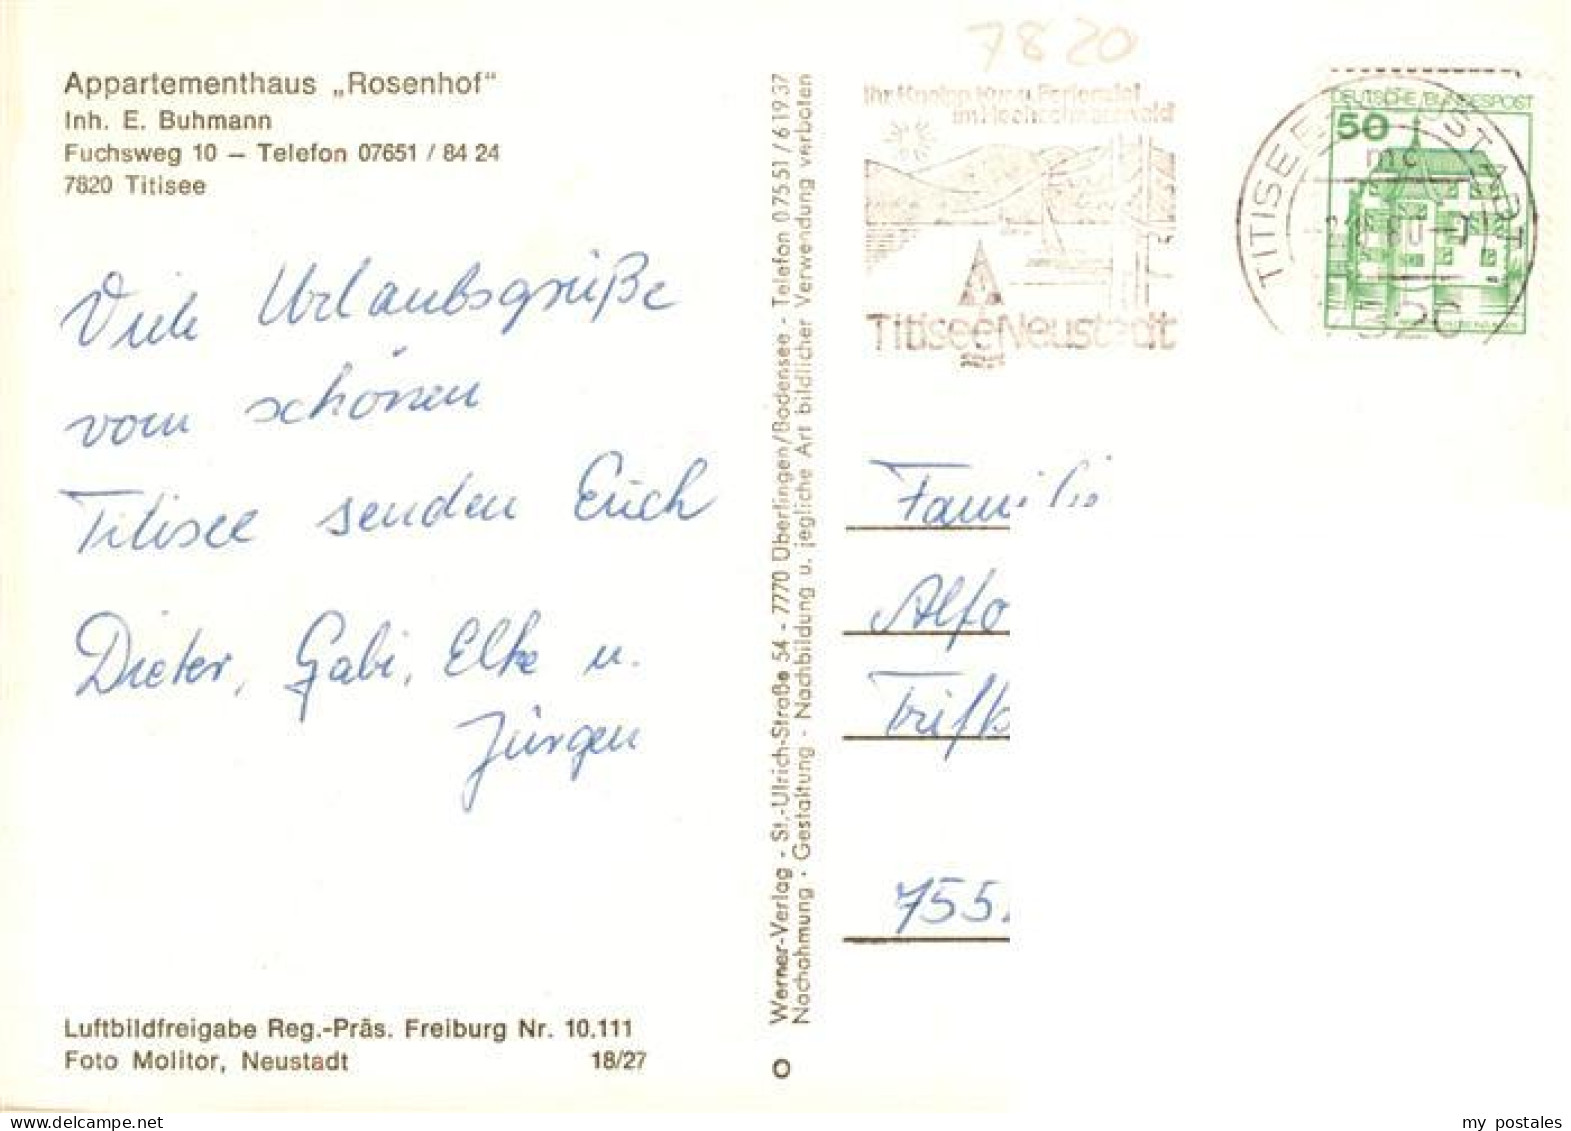 Appartementhaus „Rosenhof“
Inh. E. Buhmann
Fuchsweg 10 — Telefon 07651 / 84 24
7820 Titisee
Viele Urlaubsgrüße
vom schönen
Titisee senden Euch
Dieter, Gabi, Elke u.
Jürgen
Luftbildfreigabe Reg.-Präs. Freiburg Nr. 10.111
Foto Molitor, Neustadt 18/27
Werner-Verlag - St.-Ulrich-Straße 54 - 7770 Überlingen/Bodensee - Telefon 07551/61937
Nachahmung - Gestaltung - Nachbildung u. jegliche Art bildlicher Verwendung verboten
7820
im Hochschwarzwald
Titisee Neustadt
DEUTSCHE BUNDESPOST
50
mc
TITISEE-NEUSTADT
Famili
Alfo
Trifk
755
my postales